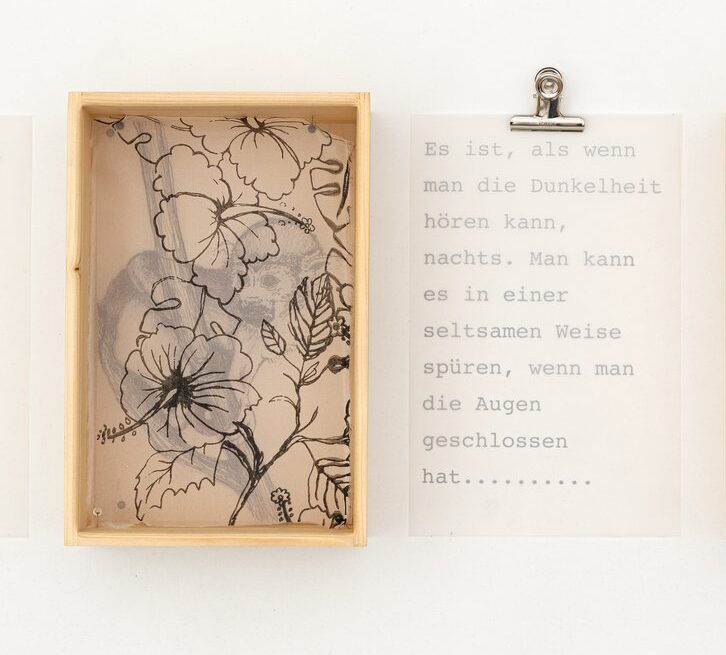 Es ist, als wenn
man die Dunkelheit
hören kann,
nachts. Man kann
es in einer
seltsamen Weise
spüren, wenn man
die Augen
geschlossen
hat..........